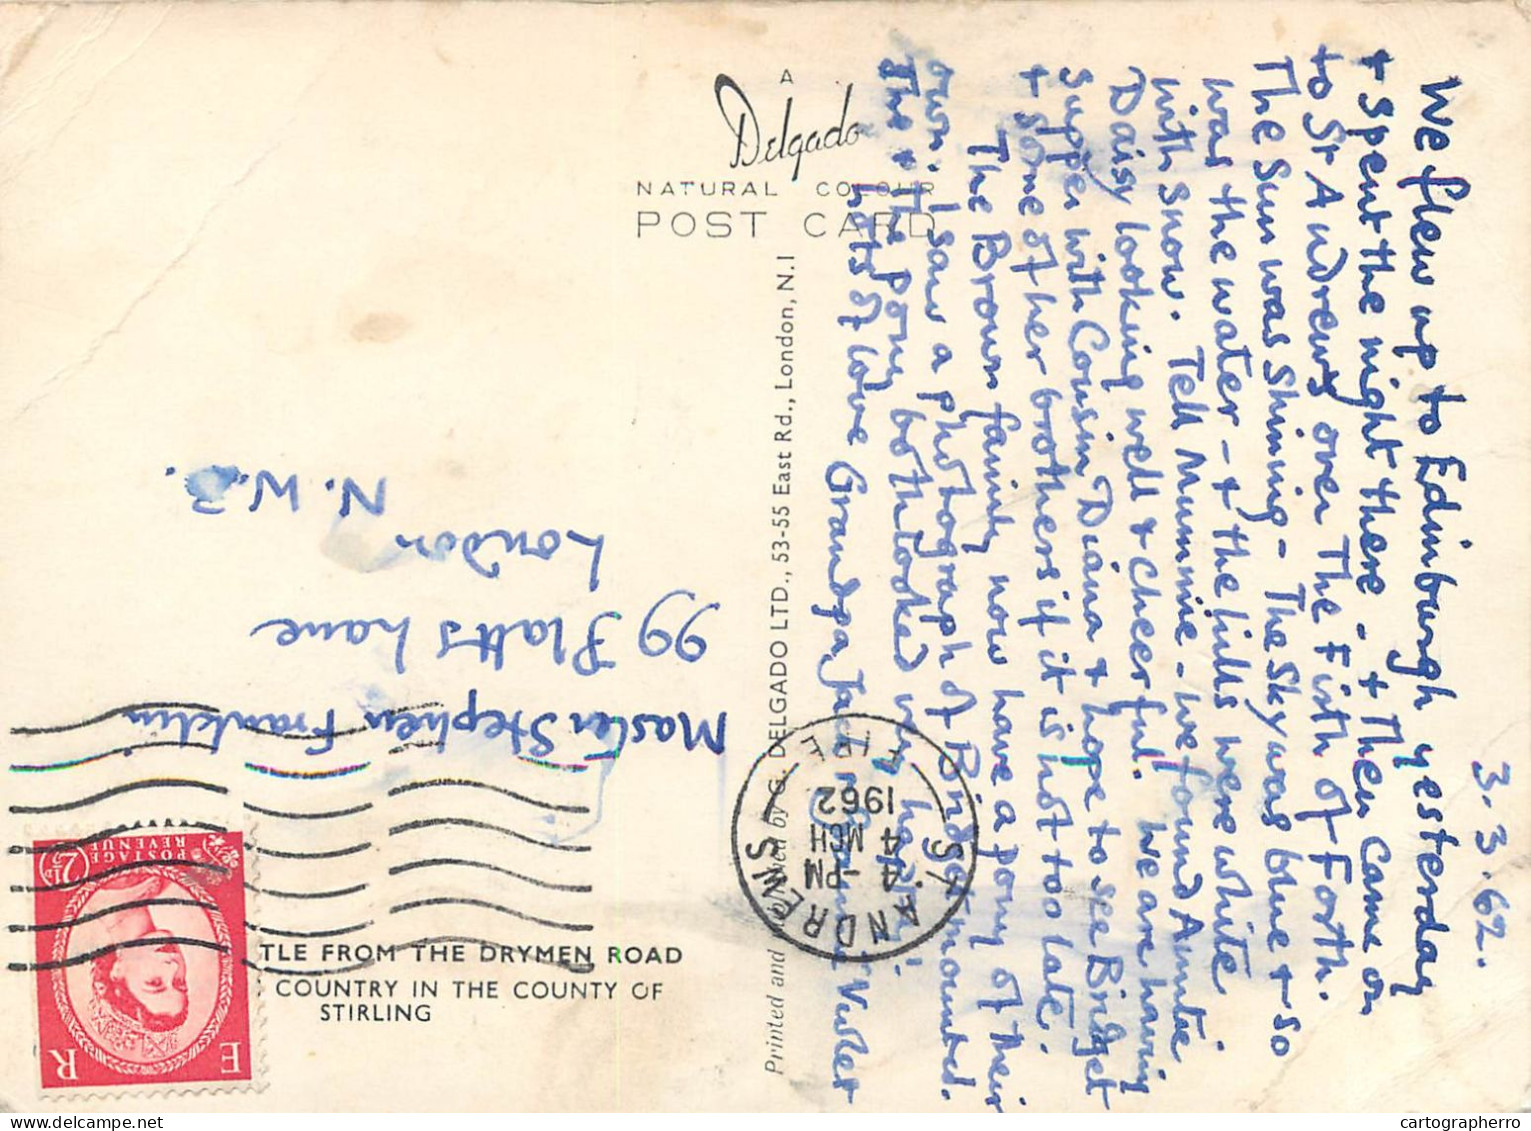 3.3.62.
We flew up to Edinburgh yesterday
+ spent the night there - + then came on
to St Andrews over The Firth of Forth.
The Sun was shining - The Sky was blue + so
was the water - + the hills were white
with snow. Tell Mummie - we found Auntie
Daisy looking well + cheerful. We are having
supper with Cousin Diana + hope to see Bridget
+ some of her brothers if it is not too late.
The Brown family now have a pony of their
own. I saw a photograph of Bridget mounted.
She + the pony both looked very happy!
Lots of love Grandpa Jack + Violet
Master Stephen Franklin
99 Platts Lane
London
N.W.3.
A
Delgado
NATURAL COLOUR
POST CARD
Printed and Published by G. DELGADO LTD., 53-55 East Rd., London, N.1
ST. ANDREWS
4 - PM
4 MCH
1962
FIFE
TLE FROM THE DRYMEN ROAD
COUNTRY IN THE COUNTY OF
STIRLING
E R
POSTAGE
REVENUE
2½D
cartographerro